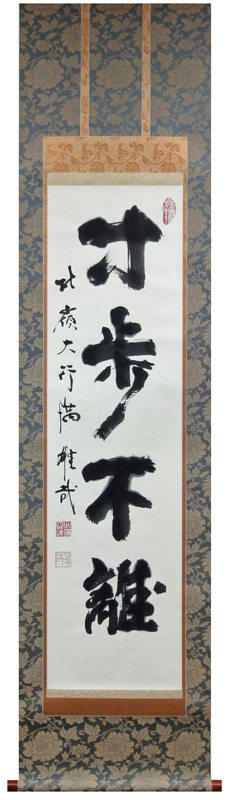 寸歩不離
北嶺大行満 雄哉